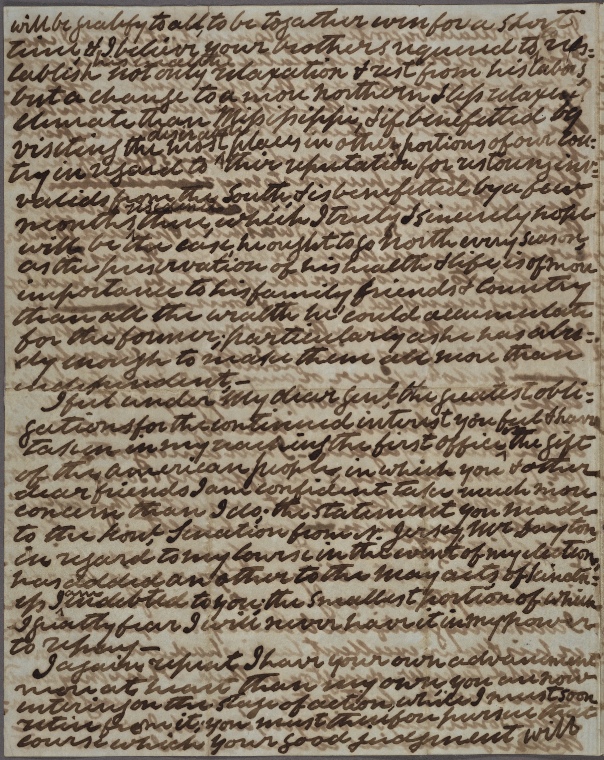 will be gratify to all, to be together even for a short
time, & I believe your brothers required to, ree=
his health
tablish not only relaxation & rest from his labors,
but a change to a more northern & less relaxing
climate than Mississippi, & if benefitted by
visiting the most places in other portions of our coun=
desirable
try in regard to their reputation for restoring in=
valids from the South, & is benefitted by a few
months there, which I truly & sincerely hope
will be the case, he ought to go North every season,
as the preservation of his health & life, is of more
importance to his family friends & Country
than all the wealth he could accumulate
for the former, particularly as he has alrea=
dy enough to make them all more than
independent.—
I feel under My dear Genl, the greatest obli=
gations for the continued interest you feel & have
taken in my reaching the first office, the gift
of the American people, in which you & other
dear friends I am confident take much more
concern than I do, the statement you made
to the Honl. Senator from N. Jersey Mr. Dayton
in regard to my course in the event of my election,
has added another to the many acts of kindn=
ess I am indebted to you, the smallest portion of which
I greatly fear I will never have it in my power
to repay—
I again repeat I have your own advancement
more at heart, than my own, you are now
entering on the stage of action, while I must soon
retire from it; you must therefore pursue that
course which your good judgment will